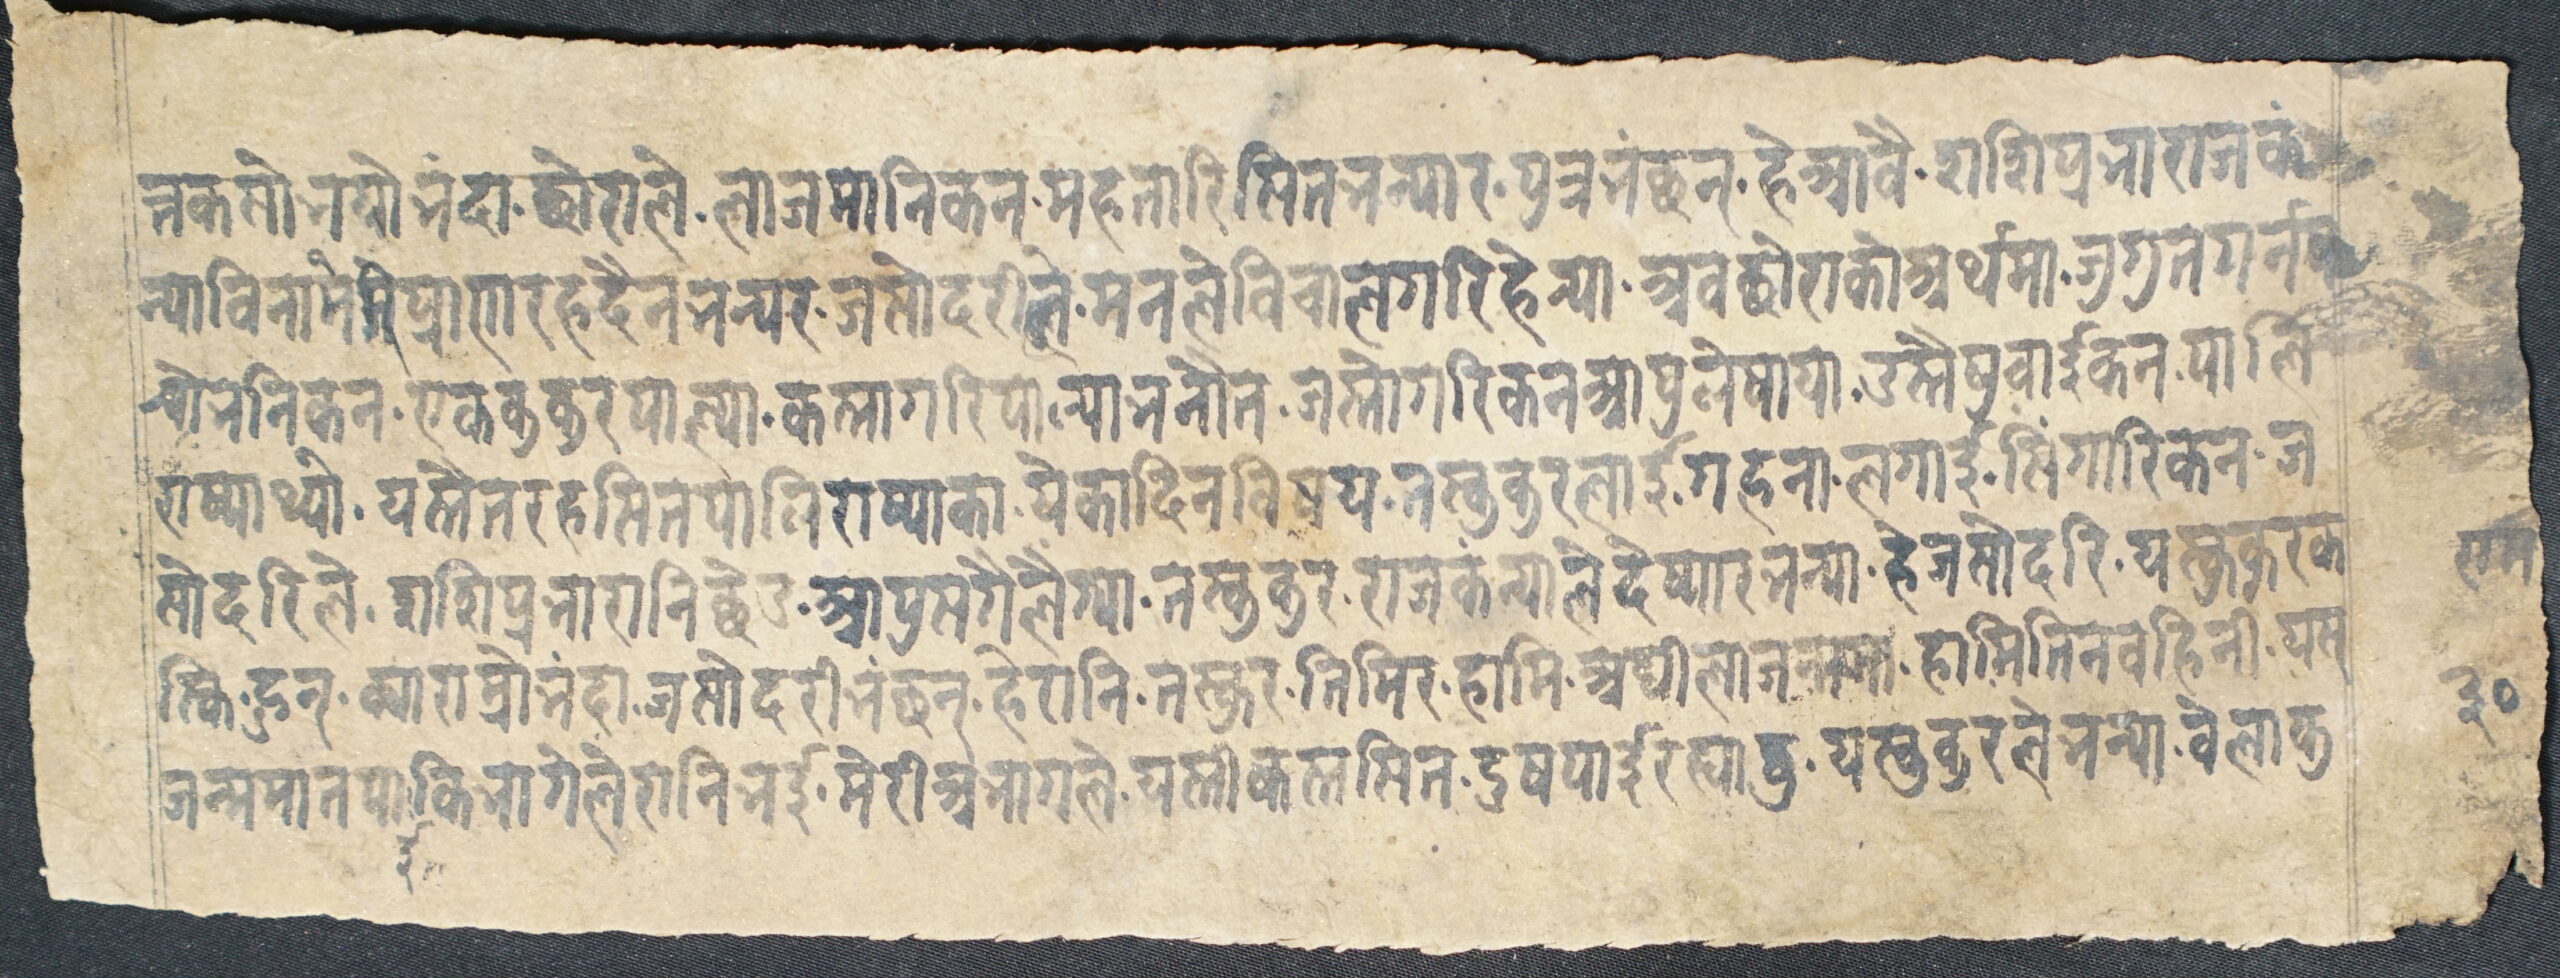 न कसो भयो भंदा. छोराले. लाजमानिकन. महतारि सित भन्यार. पुत्र भंछन्. हे आवै. शशिप्रभा राजकं
न्या विना मेरो प्राण रहदैन भन्यर. जसोदरीले. मनले विचाल गरि हेन्या. अव छोराको अर्थमा. जुगुत गर्न
भनिकन. एक कुकुर पाल्या. कस्ता गरि पाल्या भनौत. जस्तो गरिकन आपुले षाया. उस्तै षुवाईकन. पालि
राष्याथ्यो. यस्तै तरहसित पालि राष्याका. येका दिन विषय. तस् कुकुरलाई. गहना. लगाई. सिंगारिकन. ज
सोदरिले. शशिप्रभा रानि छेउ. आपु सगै लैग्या. तस् कुकुर. राजकंन्याले देष्यार भन्या. हे जसोदरि. यस् कुकुरक
स्कि. हुन्. भंदा. जसोदरी भंछन्. हे रानि. तिमिर. हामि. अघीला जन्ममा. हामि तिन वहिनी. यस्
जन्ममा तपाईकि भागेले रानि भई. मेरी अभागले. यस्ती कस्तसित. दुष पाई रह्याछु. यस् कुकुरले भन्या. वेलाकु
राम
३०